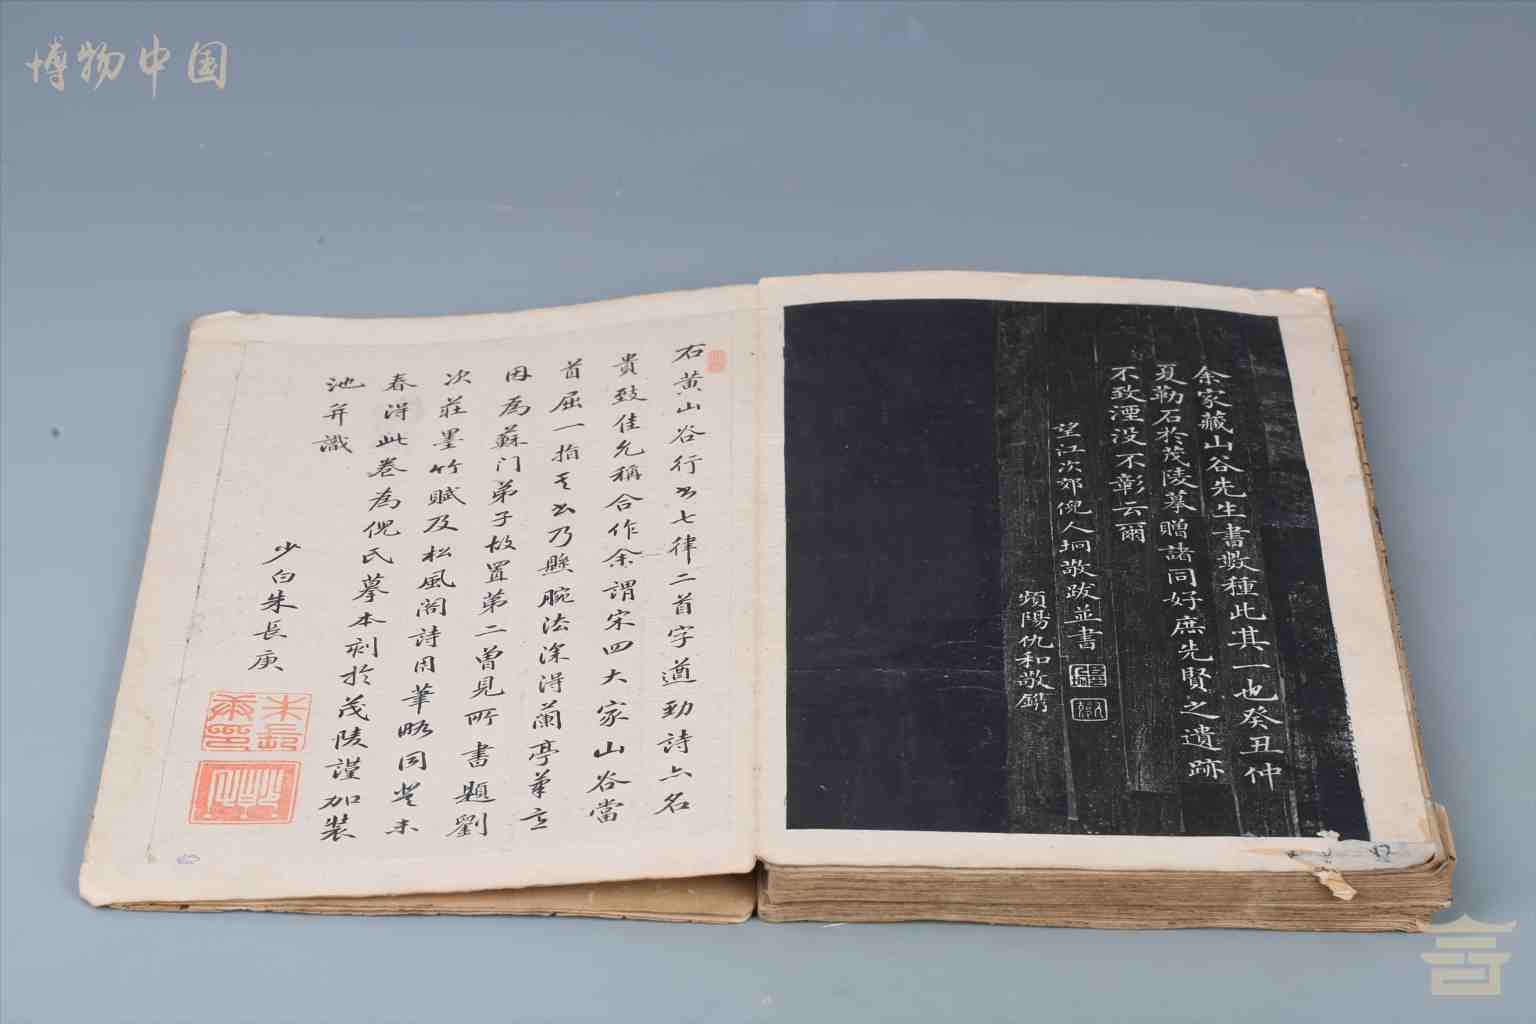 博物中国
余家藏山谷先生書數種此其一也癸丑仲
夏勒石於茂陵摹贈諸同好庶先賢之遺跡
不致湮没不彰云爾
望江次郊倪人垌敬跋並書
頻陽仇和敬鐫
石黄山谷行书七律二首字遒勁詩亦名
貴致佳允稱合作余謂宋四大家山谷當
首屈一指其书乃懸腕法深得蘭亭筆意
因為蘇门弟子故置第二曾見所書題劉
次莊墨竹賦及松風閣詩用筆略同癸未
春得此卷為倪氏摹本刻於茂陵謹加裝
池并識
少白朱長庚